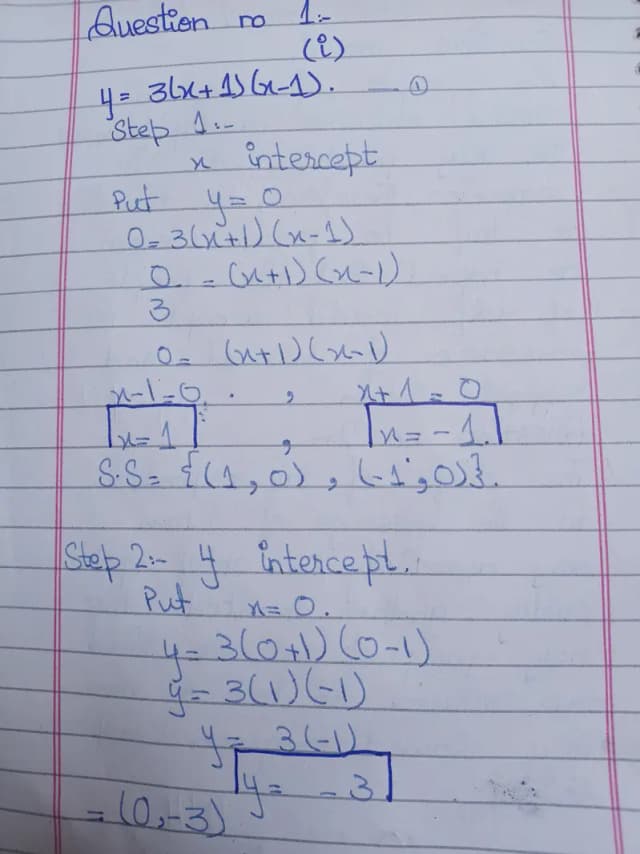 Question no 1:-
(i)
y = 3(x+1)(x-1). — ①
Step 1:-
x intercept
Put y = 0
0 = 3(x+1)(x-1)
0/3 = (x+1)(x-1)
0 = (x+1)(x-1)
x-1=0 , x+1 = 0
x = 1 , x = -1.
S.S = {(1,0), (-1,0)}.
Step 2:- y intercept.
Put x = 0.
y = 3(0+1)(0-1)
y = 3(1)(-1)
y = 3(-1)
y = -3
= (0,-3)